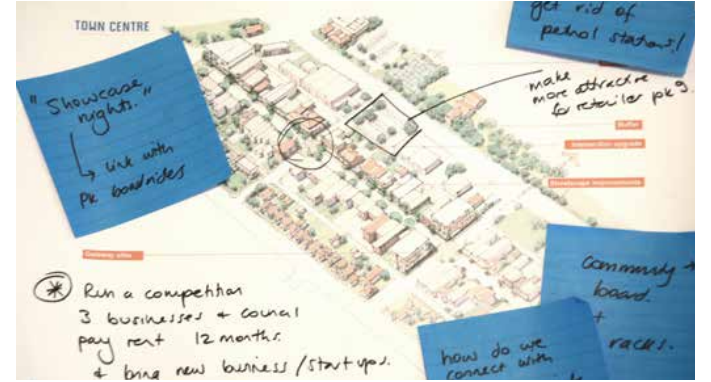 TOWN CENTRE
get rid of
petrol stations!
"Showcase
nights."
↳ link with
PK boardrides
make
more attractive
for retailer pkg.
Buffer
Intersection upgrade
Streetscape improvements
Gateway sites
* Run a competition
3 businesses + council
pay rent 12 months.
+ bring new business / start ups.
community →
board.
+
racks.
how do we
connect with